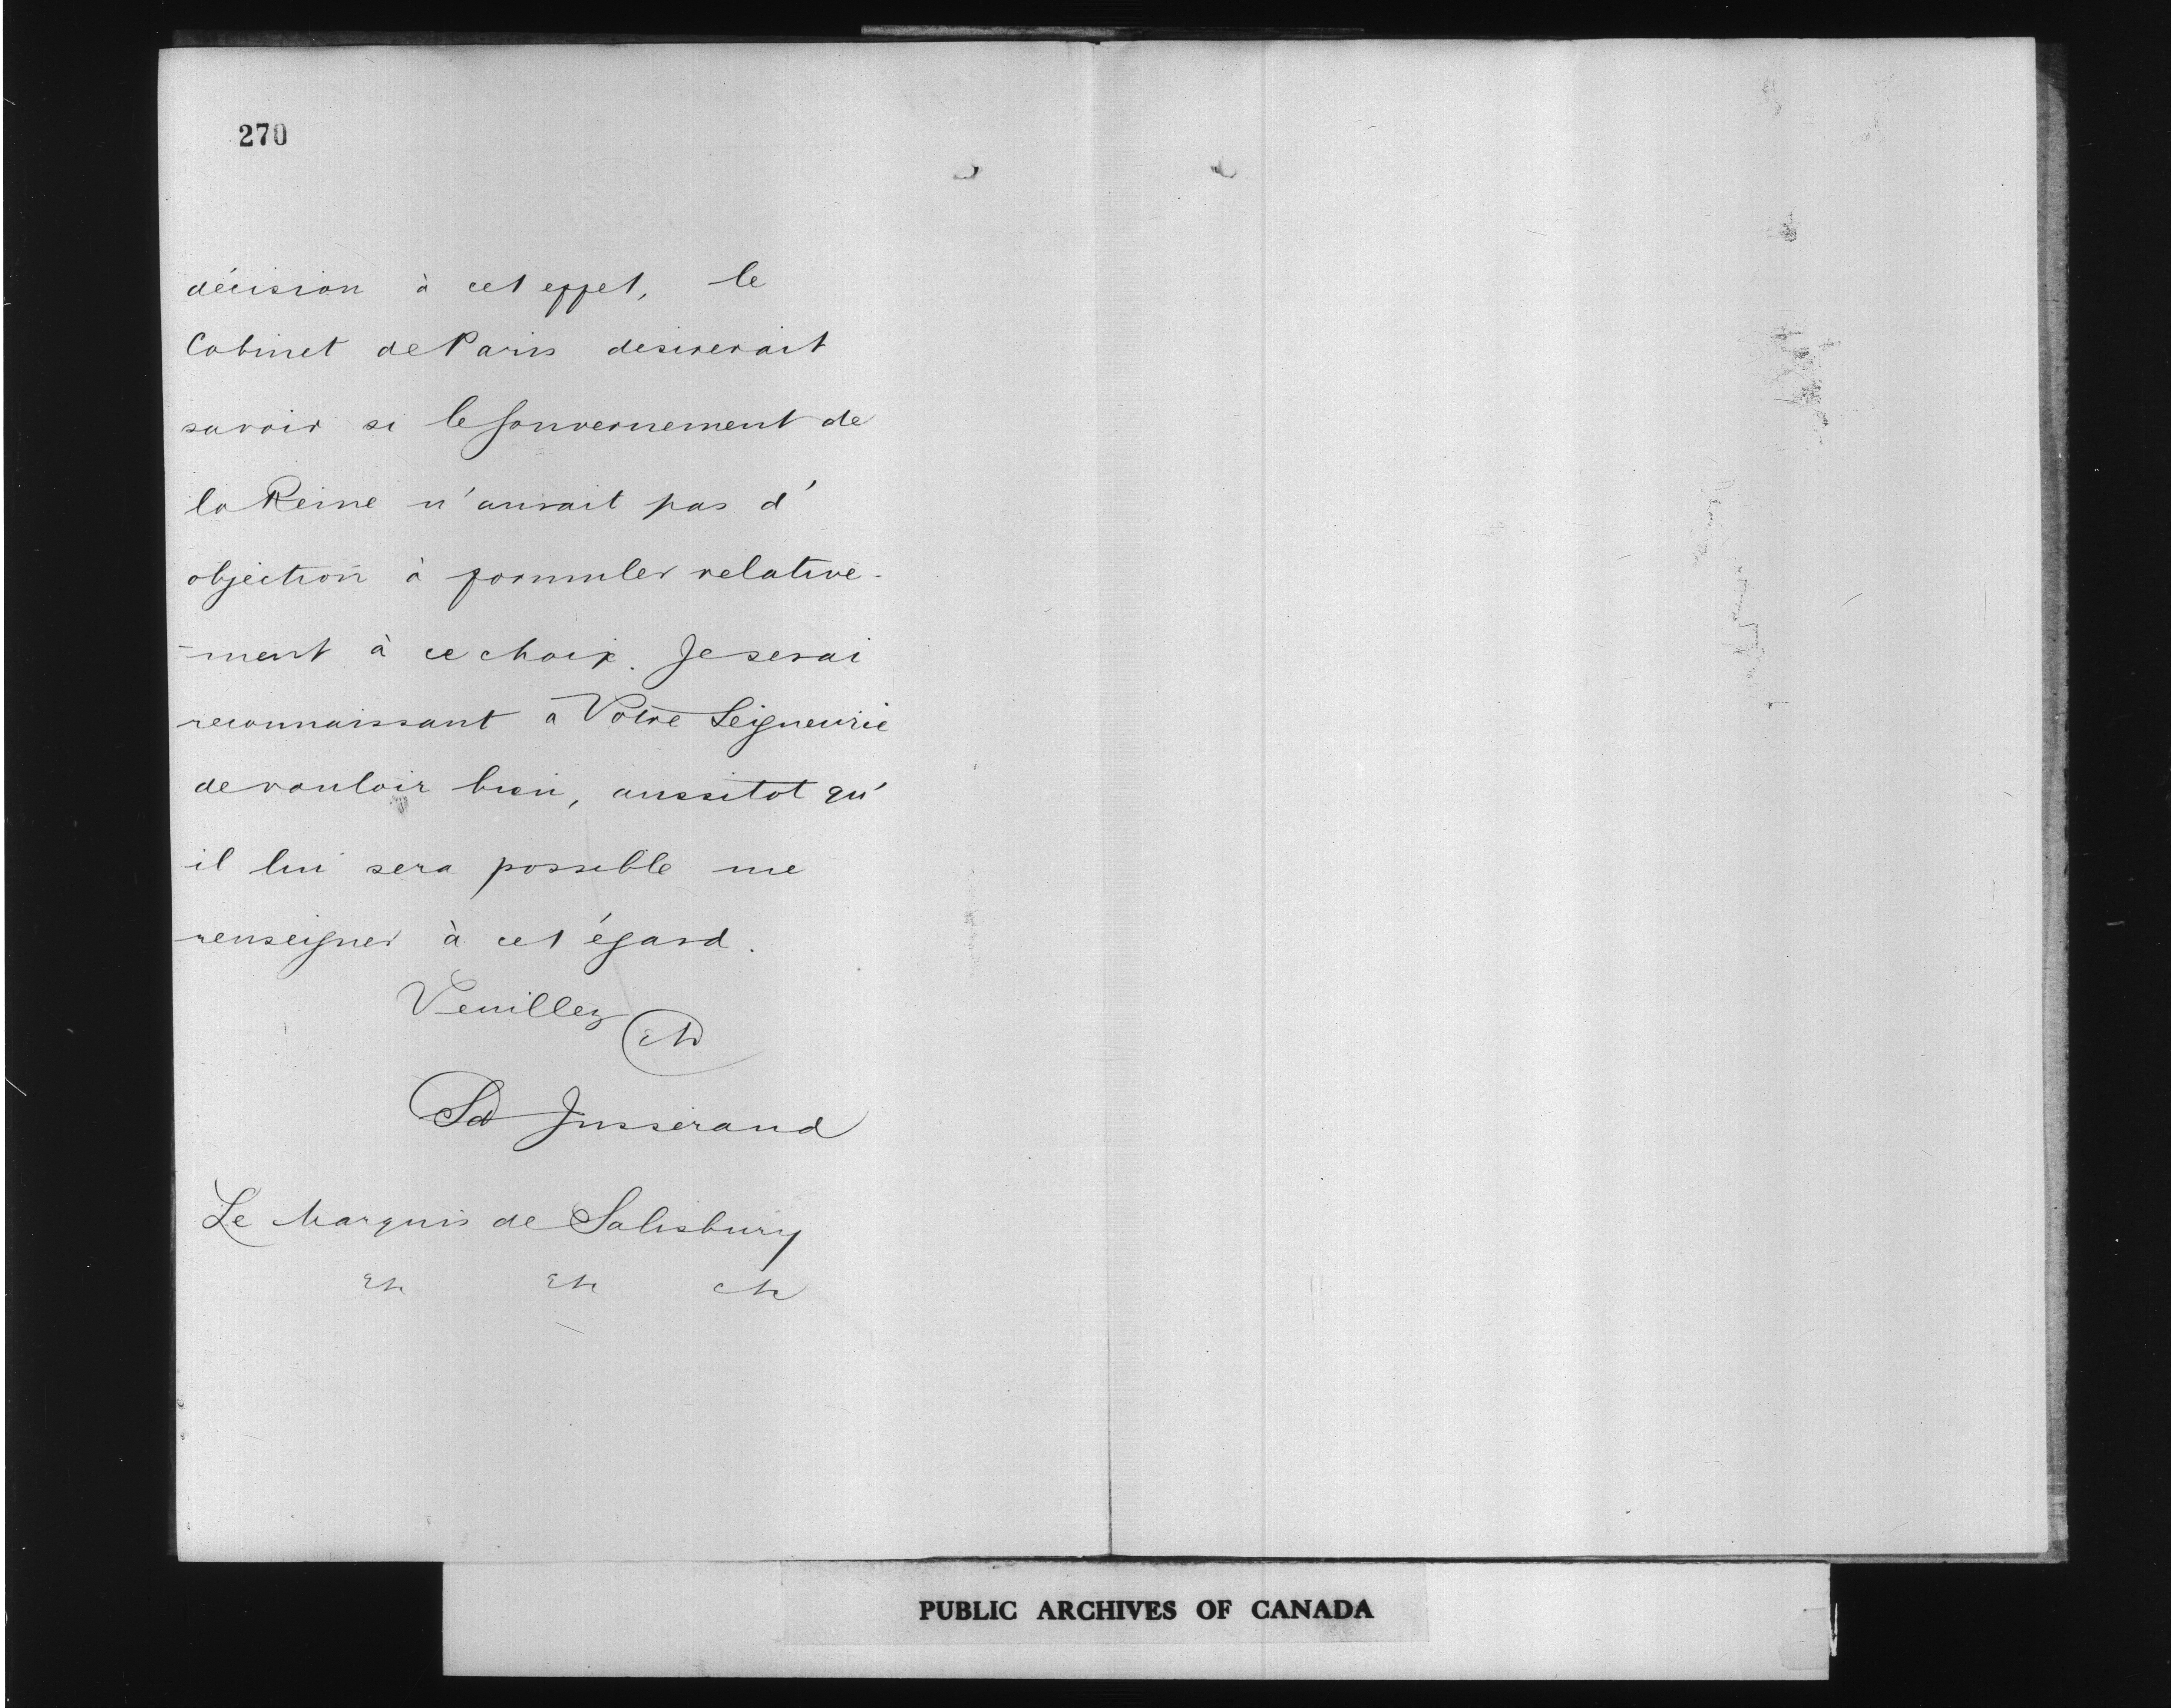 270
décision à cet effet, le
Cabinet de Paris desirerait
savoir si le Gouvernement de
la Reine n'aurait pas d'
objection à formuler relative-
-ment à ce choix. Je serai
reconnaissant a Votre Seigneurie
de vouloir bien, aussitot qu'
il lui sera possible me
renseigner à cet égard.
Veuillez
etc
Sd Jusserand
Le Marquis de Salisbury
etc etc etc
PUBLIC ARCHIVES OF CANADA